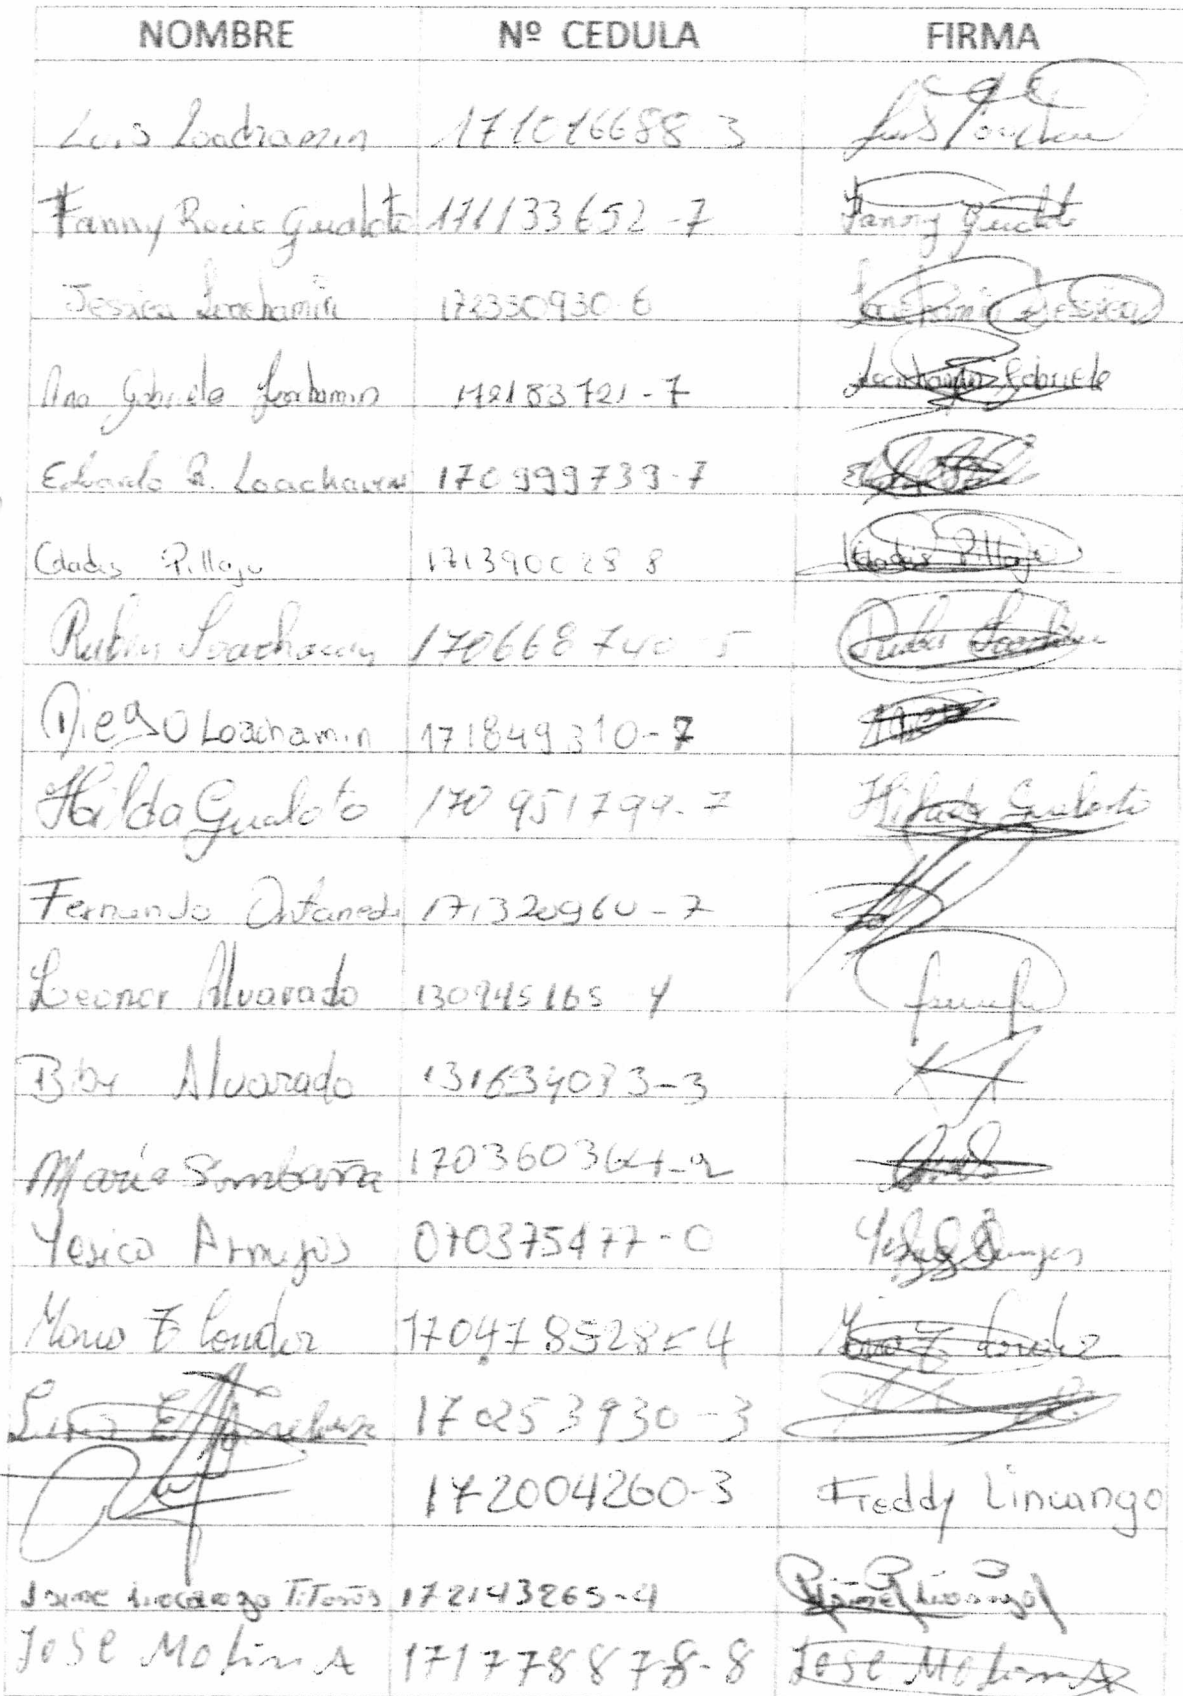 NOMBRE Nº CEDULA FIRMA
Luis Loachamin 171016688-3 Luis
Fanny Rocio Gualoto 171133652-7 Fanny Gualoto
Jessica Loachamin 172330930-6 Loachamin Jessica
Ana Gabriela Loachamin 172183721-7 Loachamin Gabriela
Eduardo R. Loachamin 170999739-7
Gladis Pillajo 171390028 8 Gladis Pillajo
Ruben Loachamin 170668740-5 Ruben Loachamin
Diego Loachamin 171849310-7
Hilda Gualoto 170951799-7 Hilda Gualoto
Fernando Ontaneda 171320960-7
Leonor Alvarado 130945165 4
Biby Alvarado 131634083-3
Maria Simbaña
Yesica Armijos 070375477-0 Armijos
Maria Z Condor Maria Z Condor
Luis E 170253930-3
172004260-3 Freddy Lincango
Jaime Lincango T. 172143265-4 Jaime Lincango
Jose Molina A 171778878-8 Jose Molina A